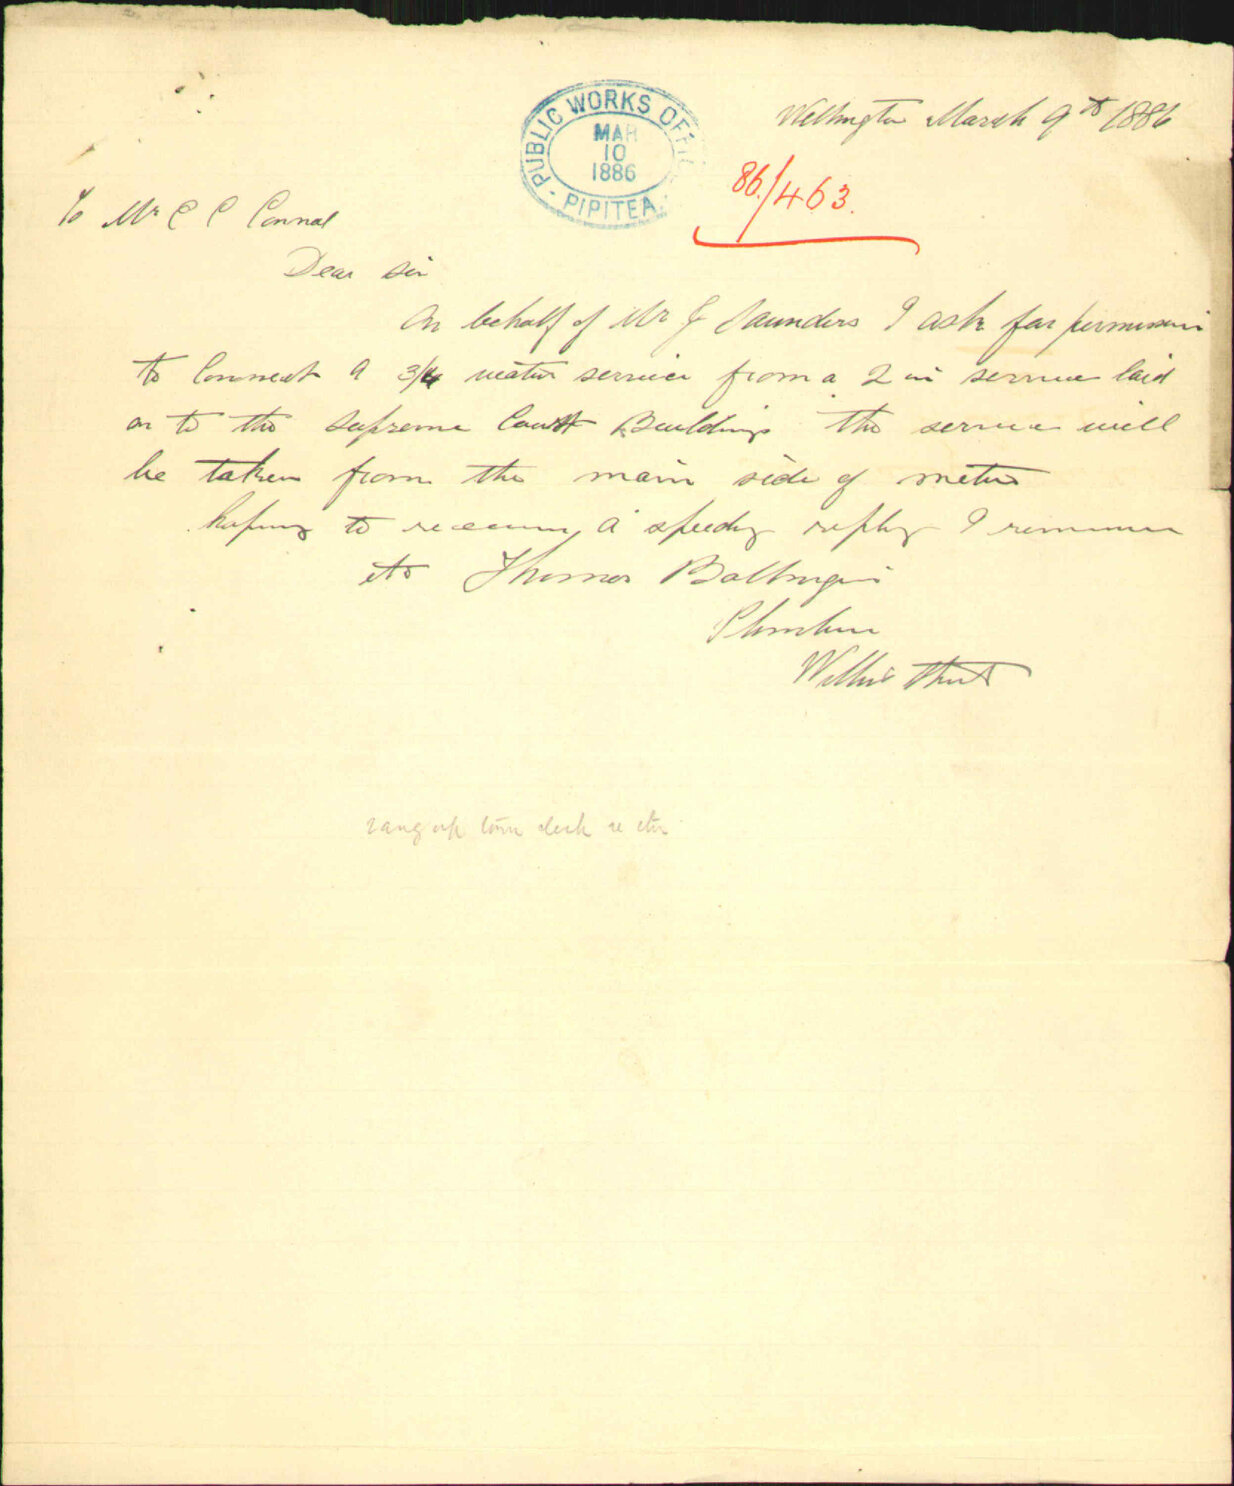 Wellington March 9th 1886
PUBLIC WORKS OFFICE
MAR
10
1886
PIPITEA
86/463.
To Mr C C Connal
Dear Sir
On behalf of Mr J Saunders I ask for permission
to Connect a 3/4 water service from a 2 in service laid
on to the Supreme Court Buildings the service will
be taken from the main side of meter
hoping to receive a speedy reply I remain
etc Thomas Ballinger
Plumber
Willis Street
rang up town clerk re